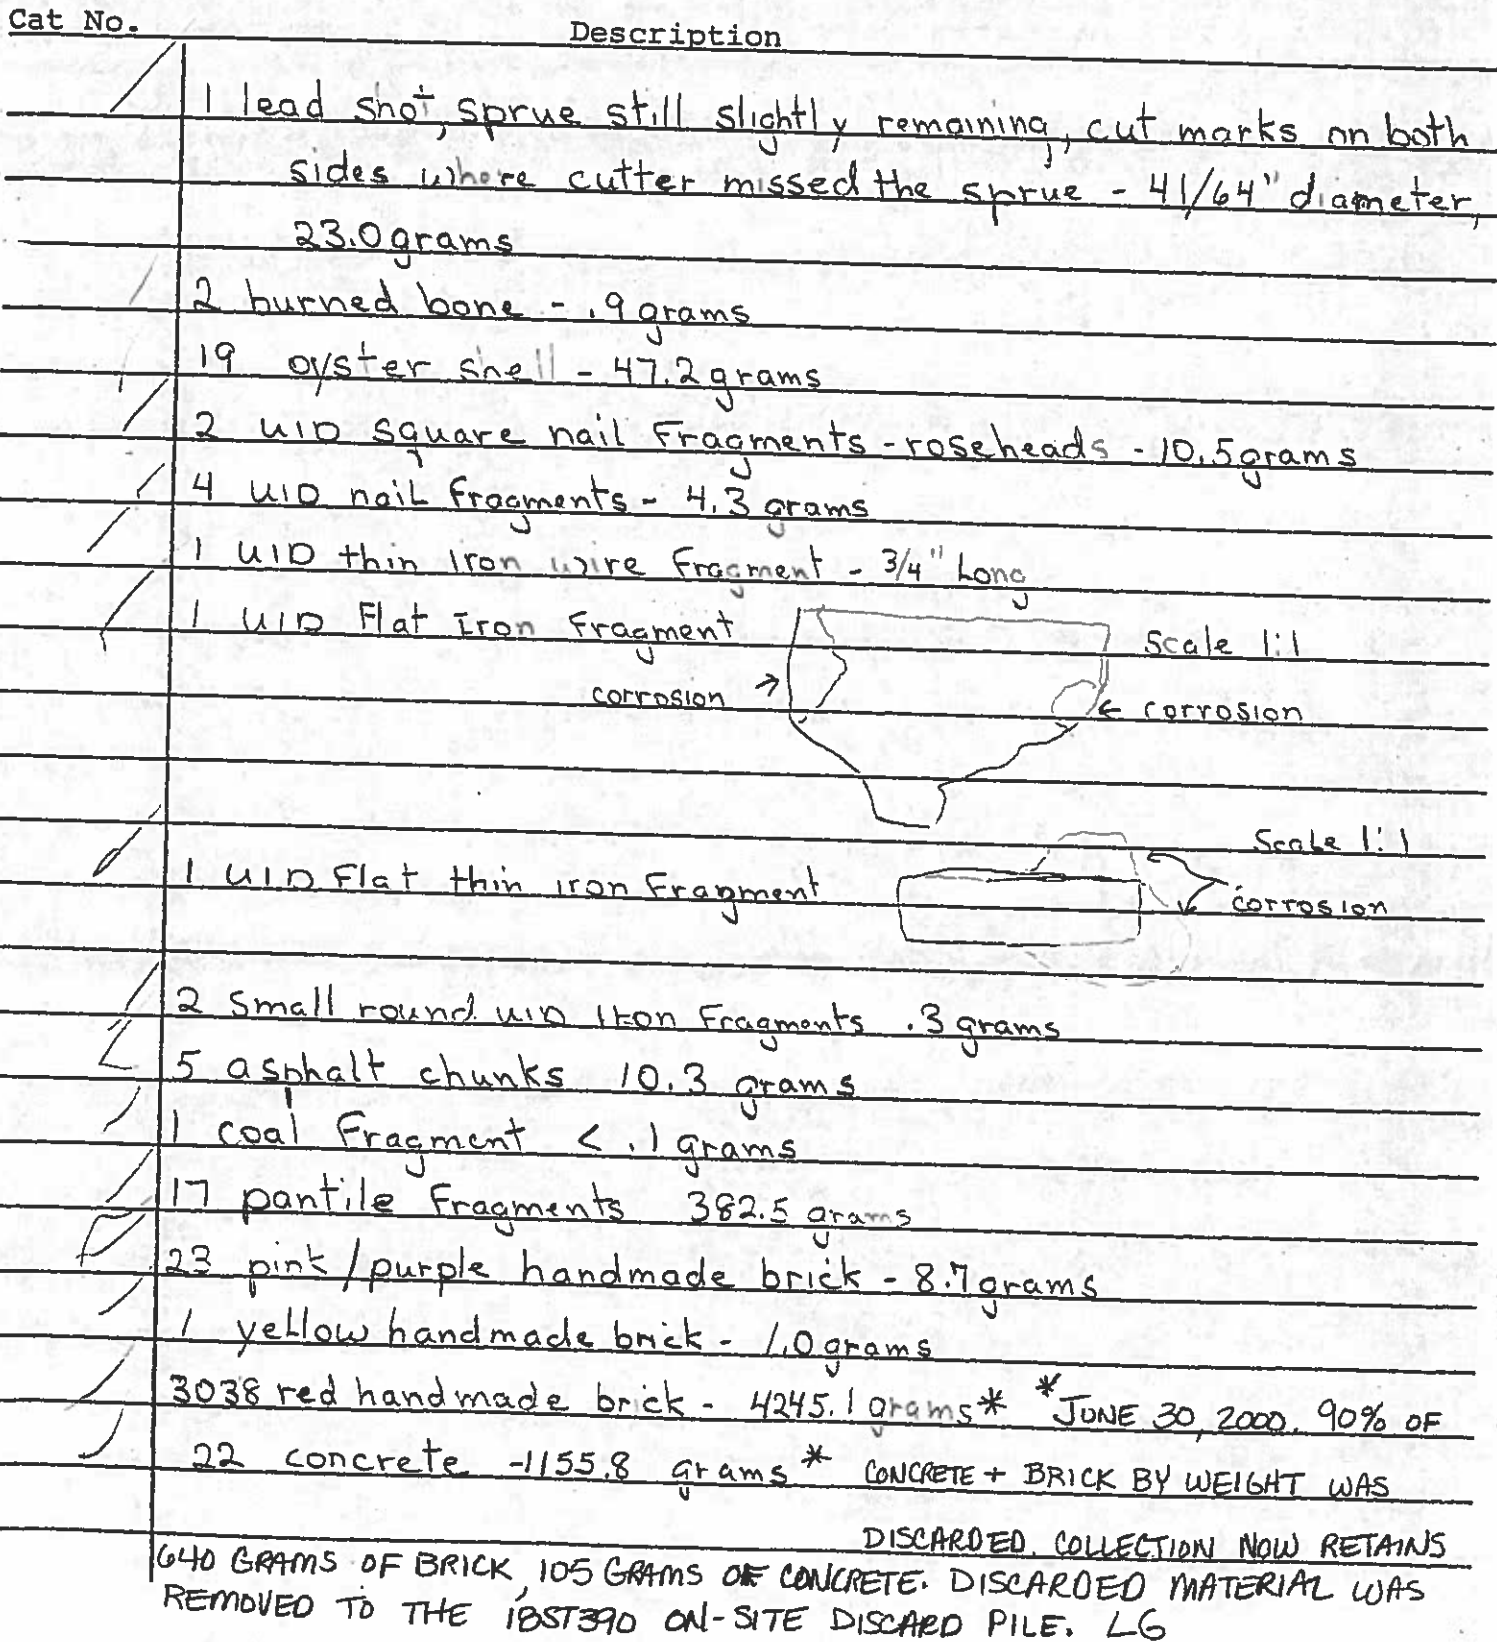 Cat No. Description
1 lead shot, sprue still slightly remaining, cut marks on both
sides where cutter missed the sprue - 41/64" diameter,
23.0 grams
2 burned bone - .9 grams
19 oyster shell - 47.2 grams
2 UID square nail fragments - roseheads - 10.5 grams
4 UID nail fragments - 4.3 grams
1 UID thin iron wire fragment - 3/4" Long
1 UID Flat Iron Fragment Scale 1:1
corrosion → ← corrosion
Scale 1:1
1 UID Flat thin iron Fragment corrosion
2 small round UID Iron Fragments .3 grams
5 asphalt chunks 10.3 grams
1 coal Fragment < .1 grams
17 pantile Fragments 382.5 grams
23 pink/purple handmade brick - 8.7 grams
1 yellow handmade brick - 1.0 grams
3038 red handmade brick - 4245.1 grams* *JUNE 30, 2000. 90% OF
22 concrete - 1155.8 grams* CONCRETE + BRICK BY WEIGHT WAS
DISCARDED. COLLECTION NOW RETAINS
640 GRAMS OF BRICK, 105 GRAMS OF CONCRETE. DISCARDED MATERIAL WAS
REMOVED TO THE 18ST390 ON-SITE DISCARD PILE. LG